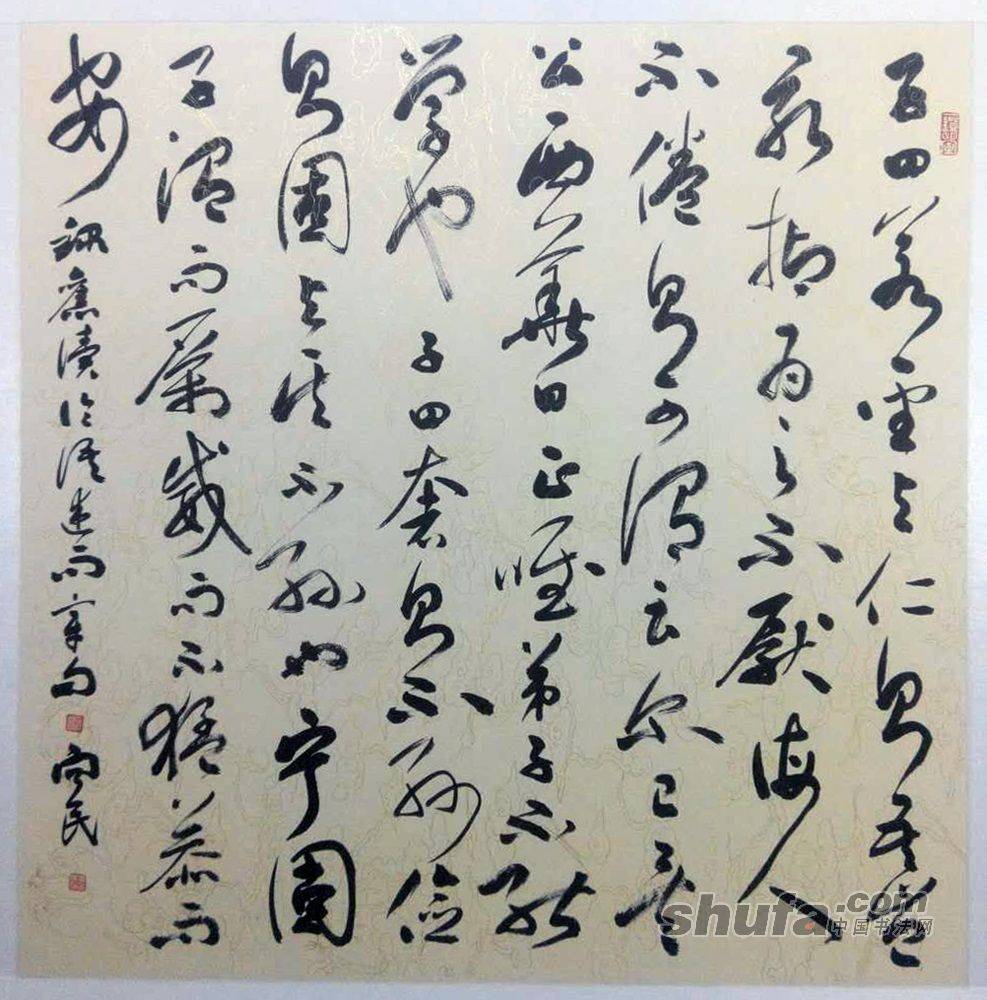 子曰若聖与仁則吾豈
敢抑为之不厭诲人
不倦則可謂云尔已矣
公西華曰正唯弟子不能
學也子曰奢則不孙儉
則固与其不孙也宁固
子温而厲威而不猛恭而
安
读论语述而章句
民
shufa.com
中国书法网